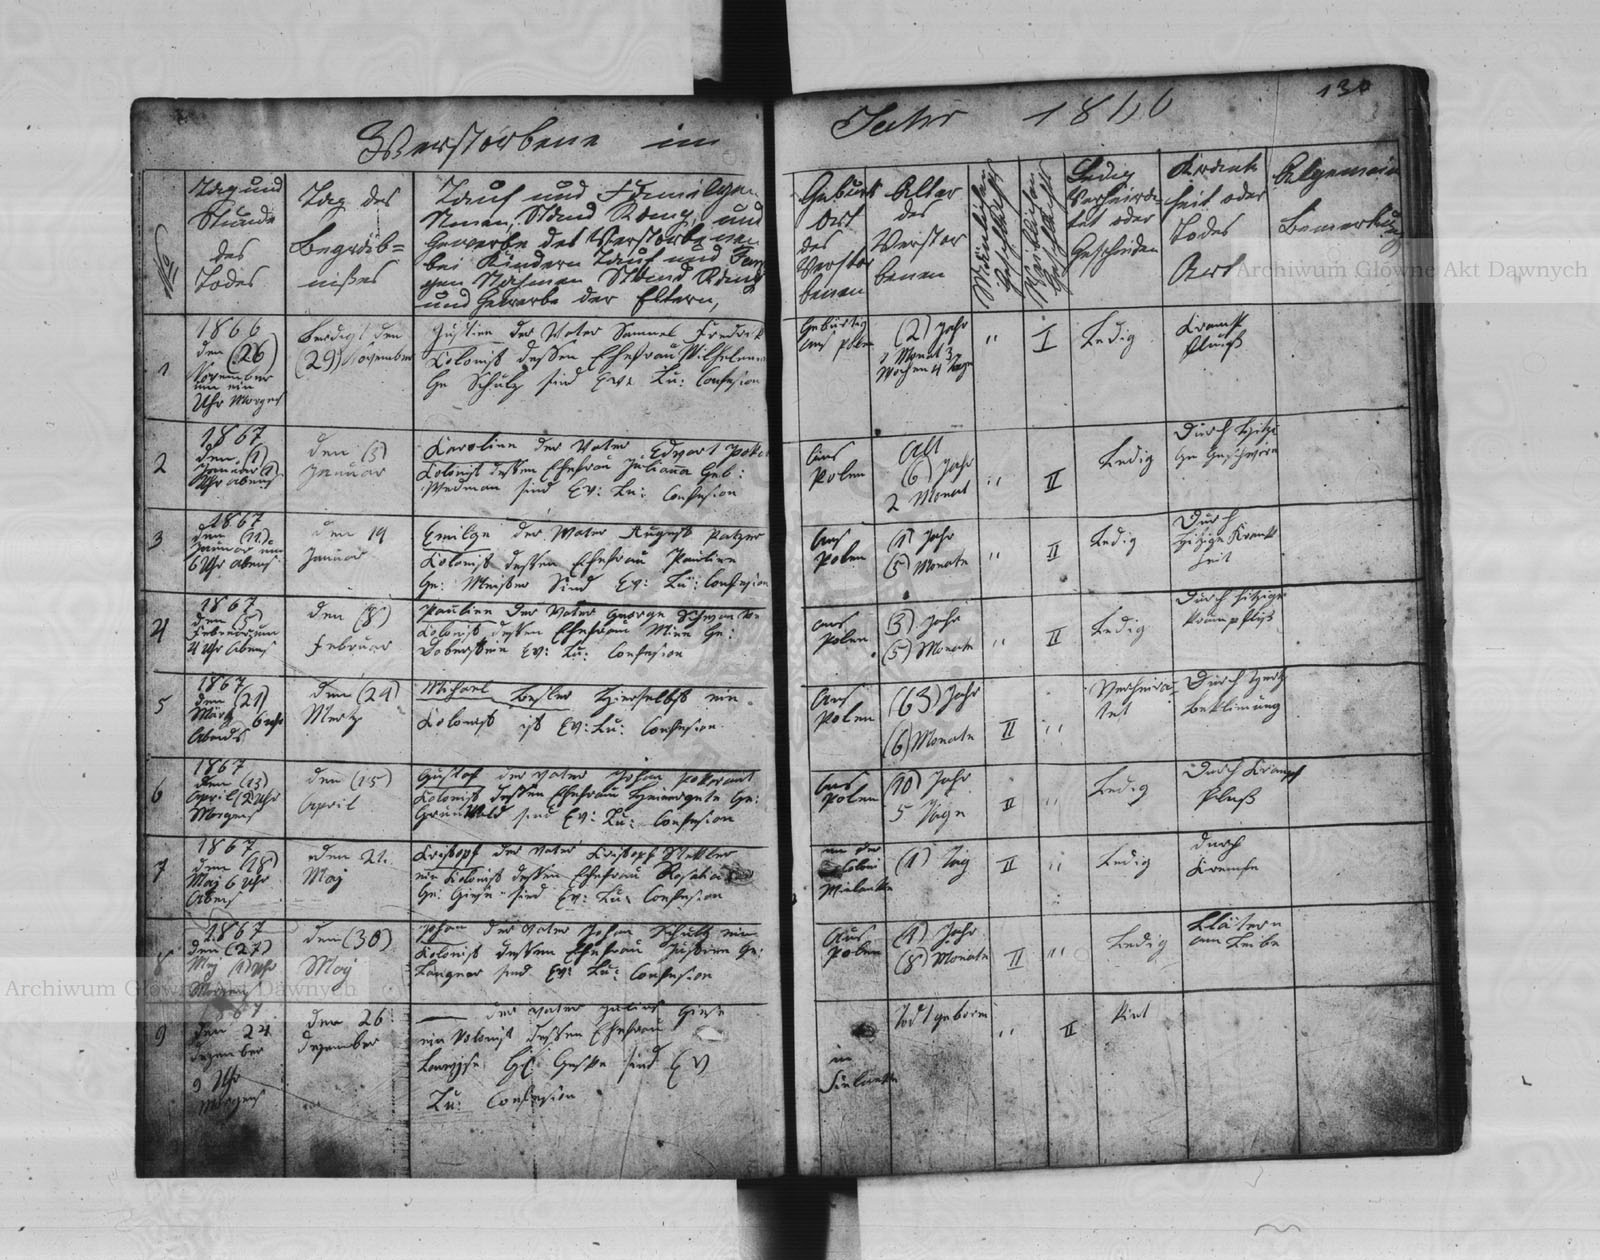 130
Verstorbene im Jahr 1866
No
Tag und
Stunde
des
Todes
Tag des
Begräb=
nißes
Tauf und Familgen
Namen, Stand Rang, und
Gewerbe des Verstorbenen
bei Kindern Tauf und Fam
gen Nahmen Stand Rang
und Gewerbe der Eltern,
Geburts
Ort
des
Verstor
benen
Alter
des
Verstor
benen
Mänlichen
Geschlechts
Weiblichen
Geschlechts
Ledig
Verheira
tet oder
Geschieden
Krank
heit oder
Todes
Art
Algemein
Bemerkung
1
1866
den (26)
November
um ein
Uhr Morgens
Berdigt den
(29) November
Justine der Vater Samuel Fredrik
Kolonist dessen Ehefrau Wilhelemine
Ge Schulz sind Eve Lu: Confesion
Gebürtig
aus Polen
(2) Jahr
Monat 3
Wochen 4 Tage
"
I
Ledig
Krampf
fluß
2
1867
den (1)
Januar (9)
Uhr abens
den (3)
Januar
Karoline der Vater Edvart
Kolonist dessen Ehefrau Juliana Geb:
Wedman sind Ev: Lu: Confesion
Aus
Polen
Alt
(6) Jahr
2 Monat
"
II
Ledig
Durch Hitzi
ge Geschwere
3
1867
den (11)
Januar um
6 Uhr abens
den 14
Januar
Emilge der Vater August Patzer
Kolonist dessen Ehefrau Pauline
Ge: Meißer Sind Ev: Lu: Confesion
Aus
Polen
(1) Jahr
(5) Monate
"
II
Ledig
Durch
hitzige Krank
heit
4
1867
den (5)
Februar um
4 Uhr Abens
den (8)
Februar
Pauline der Vater George
Kolonist dessen Ehefrau Mine Ge:
Doberstein Ev: Lu: Confesion
aus
Polen
(3) Jahr
(5) Monate
"
II
Ledig
Durch hitzige
5
1867
den (21)
Märtz 6 uhr
Abends
den (24)
Mertz
Michael Besler Hierselbst ein
Kolonist ist Ev: Lu: Confesion
Aus
Polen
(63) Jahr
(6) Monate
II
"
Verheira
tet
Durch Hertz
beklimung
6
1867
den (13)
April (2 Uhr
Morgens
den (15)
April
Gustof der Vater Johan Pokorant
Kolonist dessen Ehefrau Ge:
Grunwald sind Ev: Lu: Confesion
Aus
Polen
(10) Jahr
5 Tage
II
"
Ledig
Durch Krampf
fluß
7
1867
den (18)
Maj 6 Uhr
Abens
den 21.
Maj
Kristopf der Vater Kristopf
ein Kolonist dessen Ehefrau
Ge: Giese sind Ev: Lu: Confesion
in der
Coloni
(1) Tag
II
"
Ledig
durch
Krempfe
8
1867
den (27)
Maj Uhr
Morgens
den (30)
Maj
Johan der Vater Johan Schultz ein
Kolonist dessen Ehefrau Justine Ge:
Langner sind Ev: Lu: Confesion
Aus
Polen
(1) Jahr
(8) Monate
II
"
Ledig
Blätern
am Leibe
9
1867
den 24
Dezember
9 Uhr
Morgens
den 26
dezember
der Vater Julius Giese
ein Kolonist dessen Ehefrau
Ge: Geske sind Ev
Lu: Confesion
in
Todt geboren
"
II
Kint
Archiwum Główne Akt Dawnych
Archiwum Główne Akt Dawnych